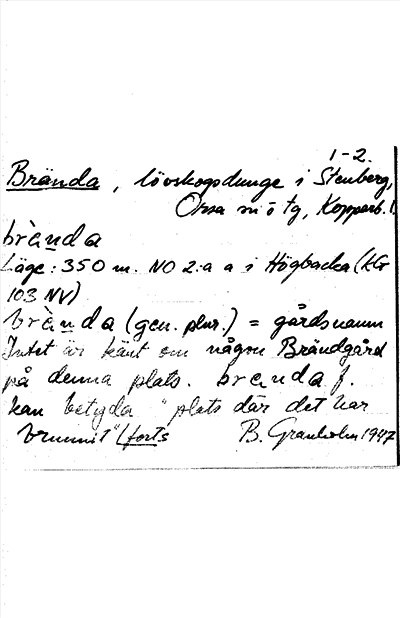 1-2.
Brända, lövskogsdunge i Stenberg,
Orsa sn o tg, Kopparb. l.
brànda
Läge: 350 m. NO 2:a a i Högbacka (KG
103 NV)
brànda (gen. plur.) = gårdsnamn
Intet är känt om någon Brändgård
på denna plats. branda f.
kan betyda "plats där det har
brunnit" (forts B. Granholm 1947